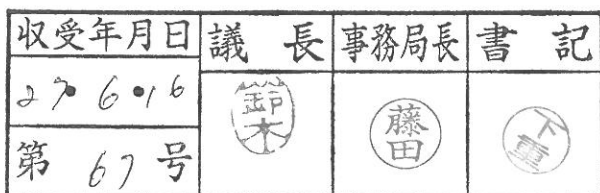 収受年月日 議長 事務局長 書記
27・6・16 鈴木 藤田 下重
第67号